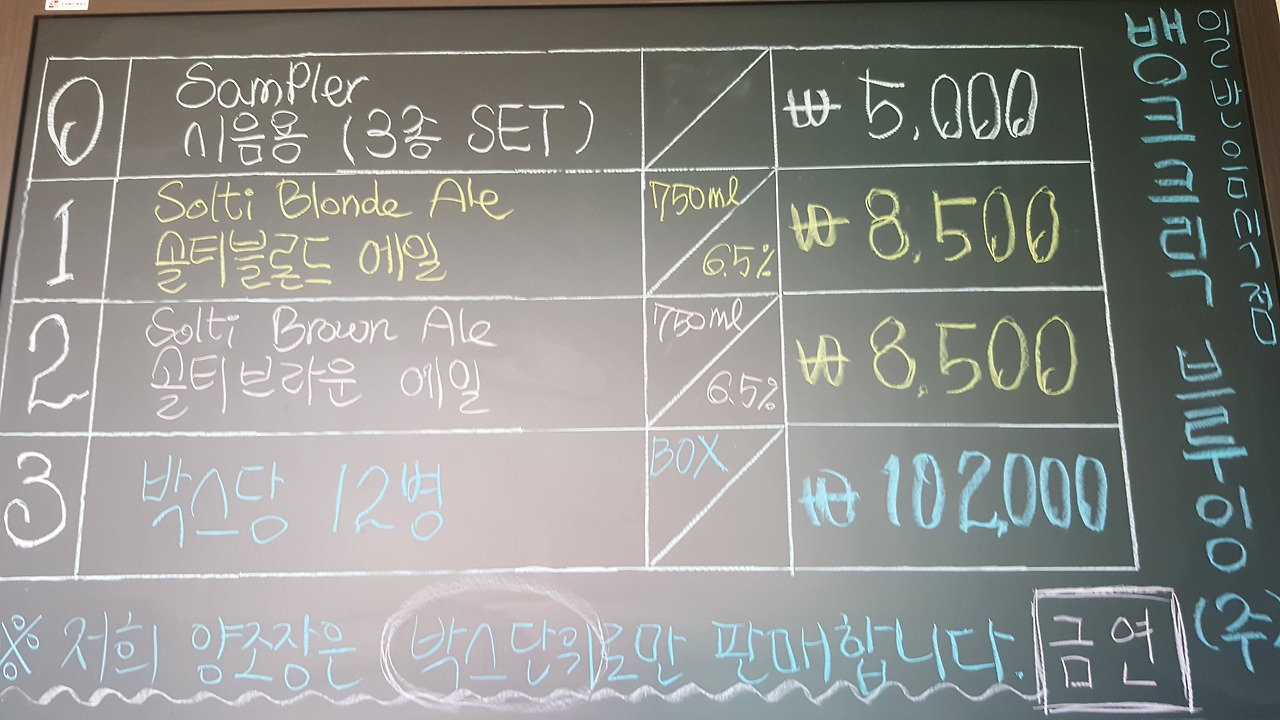 0
Sampler
시음용 (3종 SET)
₩ 5,000
1
Solti Blonde Ale
솔티블론드 에일
750ml
6.5%
₩ 8,500
2
Solti Brown Ale
솔티브라운 에일
750ml
6.5%
₩ 8,500
3
박스당 12병
BOX
₩ 102,000
※ 저희 양조장은 박스단위로만 판매합니다.
금연
일반음식점
뱅크크릭 브루잉 (주)